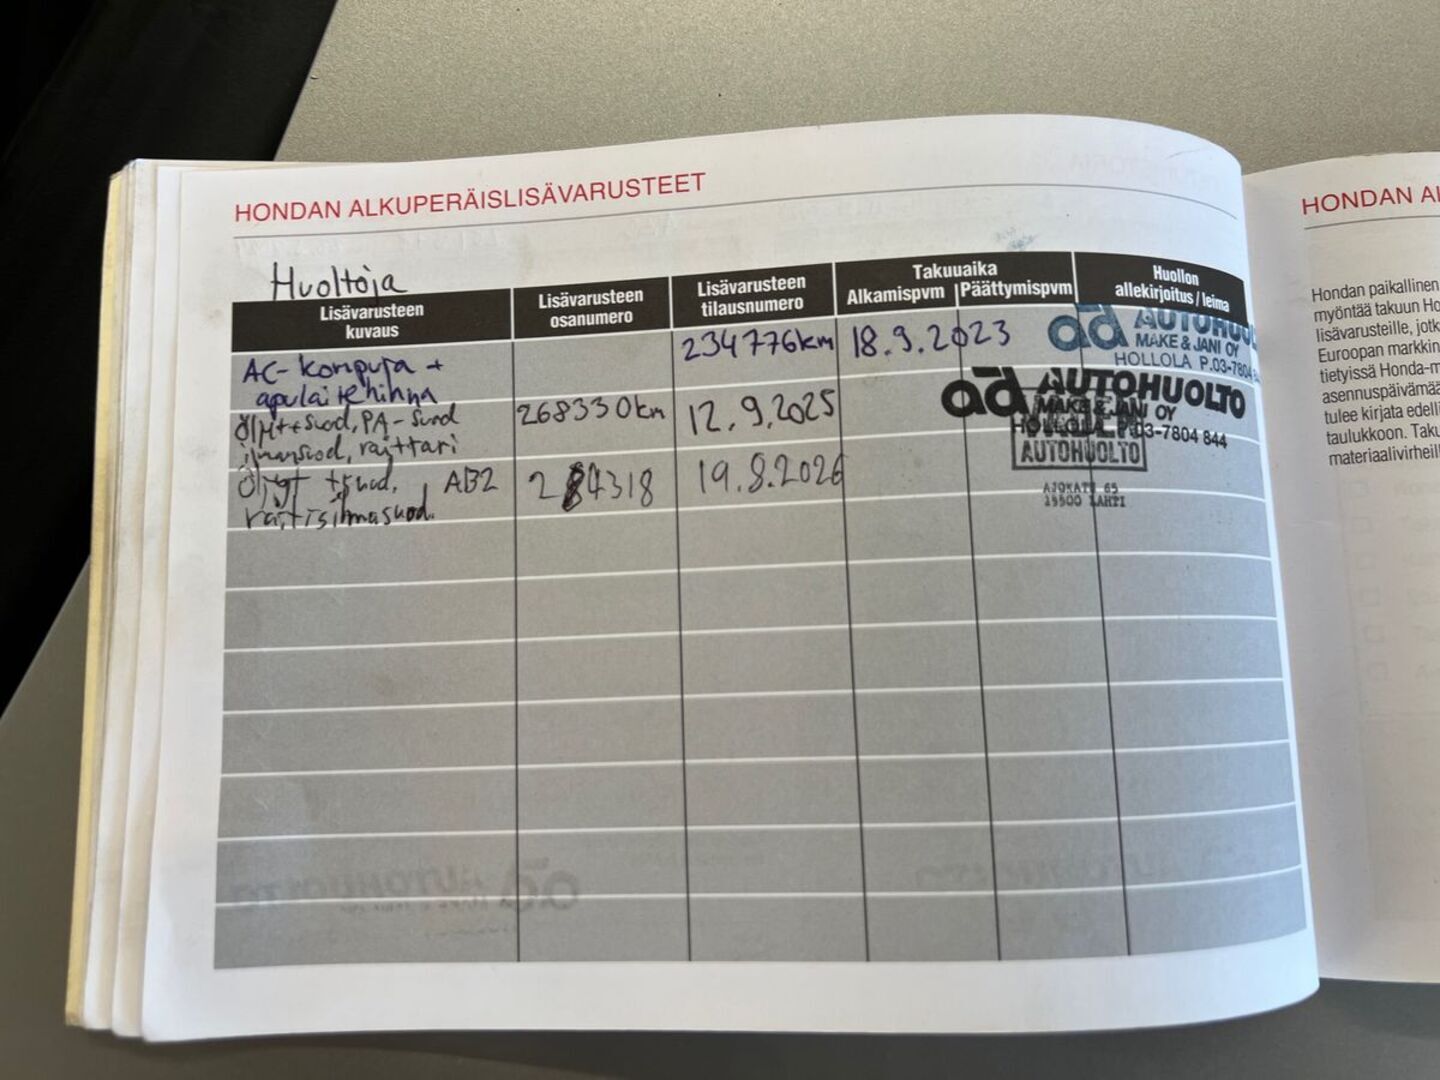 HONDAN ALKUPERÄISLISÄVARUSTEET
Huoltoja
Lisävarusteen kuvaus
Lisävarusteen osanumero
Lisävarusteen tilausnumero
Takuuaika
Alkamispvm
Päättymispvm
Huollon allekirjoitus / leima
AC-kompura +
apulaitehihna
234776km
18.9.2023
AUTOHUOL
MAKE & JANI OY
HOLLOLA P.03-7804 8
Öljyt+suod, PA-suod
ilmansuod, raittari
268330km
12.9.2025
ad AUTOHUOLTO
MAKE & JANI OY
HOLLOLA P.03-7804 844
AUTOHUOLTO
Öljyt + suod, AB2
284318
19.8.2026
AJOKATU 65
15500 LAHTI
HONDAN AL
Hondan paikallinen
myöntää takuun Ho
lisävarusteille, jotk
Euroopan markkin
tietyissä Honda-m
asennuspäivämää
tulee kirjata edelli
taulukkoon. Taku
materiaalivirheill